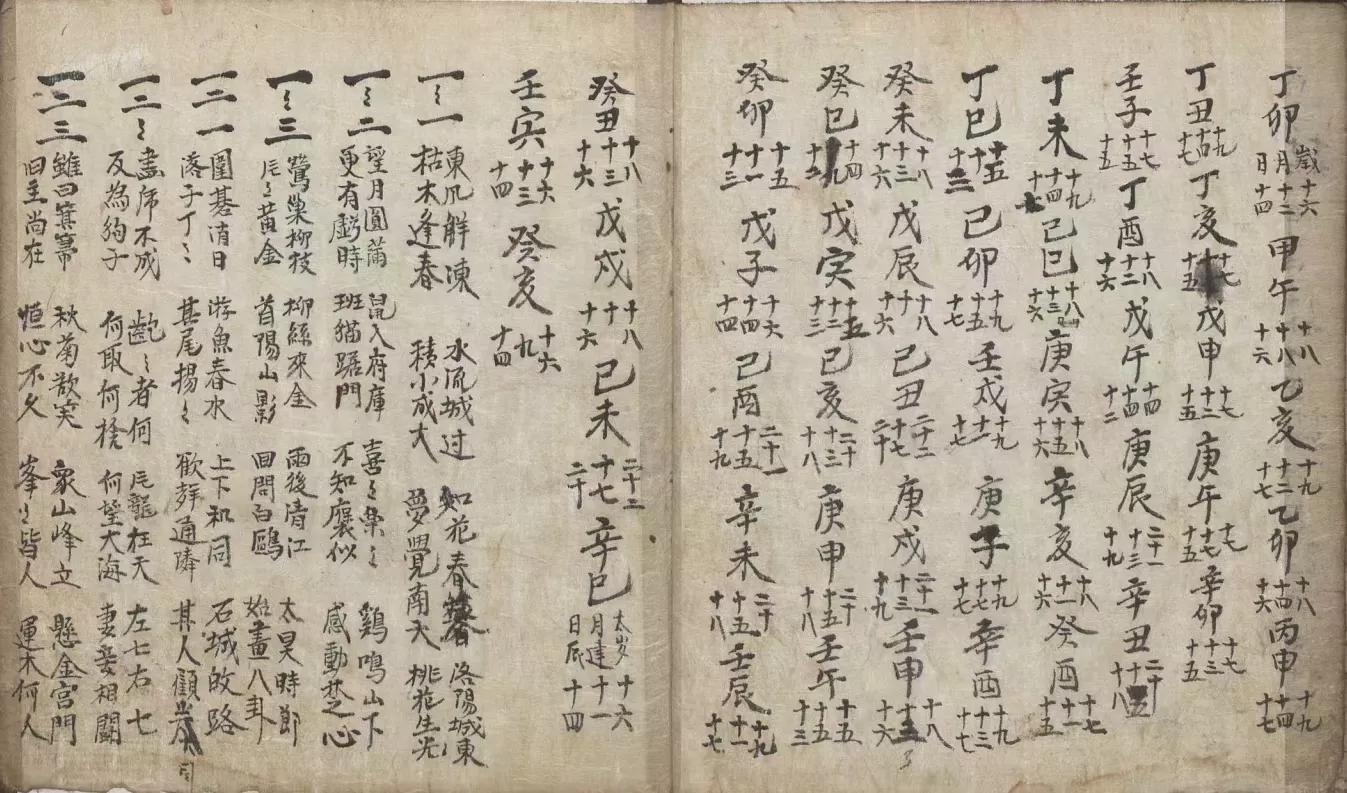 丁卯 歲十六 月十二 日十四 甲午 十八 十八 十六 乙亥 十九 十二 十七 乙卯 十八 十四 十六 丙申 十九 十四 十七
丁丑 十九 十四 十七 丁亥 十七 十五 戊申 十七 十二 十五 庚午 十七 十七 十五 辛卯 十七 十三 十五
壬子 十七 十五 十五 丁酉 十八 十二 十六 戊午 十四 十四 十二 庚辰 二十一 十三 十九 辛丑 二十 十八
丁未 十九 十四 十七 己巳 十八 十三 十六 庚寅 十八 十五 十六 辛亥 十八 十一 十六 癸酉 十七 十一 十五
丁巳 十五 十三 己卯 十九 十五 十七 壬戌 十九 十一 十七 庚子 十九 十七 十七 辛酉 十九 十三 十七
癸未 十八 十三 十六 戊辰 十八 十一 十六 己丑 二十二 十七 二十 庚戌 二十一 十三 十九 壬申 十八 十五 十六
癸巳 十四 九 十二 戊寅 十五 十三 十三 己亥 二十 十三 十八 庚申 二十 十五 十八 壬午 十五 十五 十三
癸卯 十五 十一 十三 戊子 十六 十四 十四 己酉 二十一 十五 十九 辛未 二十 十五 十八 壬辰 十九 十一 十七
癸丑 十八 十三 十六 戊戌 十八 十一 十六 己未 二十二 十七 二十 辛巳 太岁十六 月建十一 日辰十四
壬寅 十六 十三 十四 癸亥 十六 九 十四
一〻一 東風解凍 水流城过 如花春暮 洛陽城東
枯木逢春 積小成大 夢覺南天 桃花生光
一〻二 望月圓滿 鼠入府庫 喜〻樂〻 鷄鳴山下
更有虧時 班猫踞門 不知廉似 感動焚心
一〻三 鶯巢柳枝 柳絲來金 雨後清江 太昊時節
片〻黃金 首陽山影 回問白鷗 始畫八卦
一二一 圍碁消日 游魚春水 上下和同 石城故路
落子丁〻 其尾揚〻 歡群通隣 其人顧
一二〻 畫虎不成 齪〻者何 片龍在天 左七右七
反為狗子 何取何捨 何望大海 妻妾相鬪
一二三 雖曰箕箒 秋菊散実 衆山峰立 懸金宮門
旧主尚在 恒心不久 峯〻皆人 運木何人